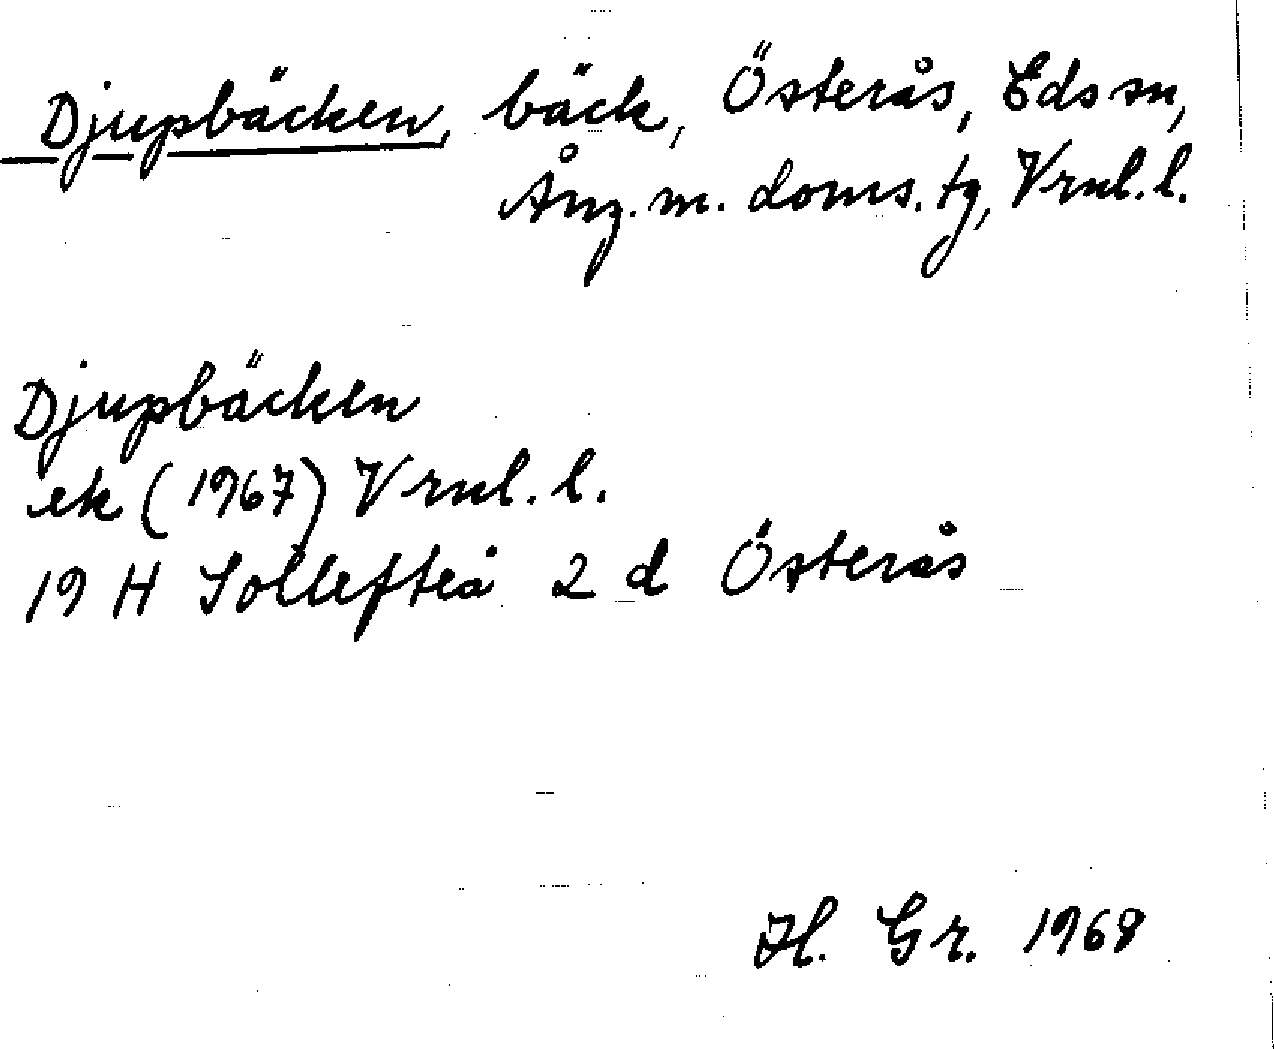 Djupbäcken, bäck, Österås, Eds sn,
Ång. m. doms. tg, Vrnl. l.
Djupbäcken
ek (1967) Vrnl. l.
19 H Sollefteå 2 d Österås
H. Gr. 1968